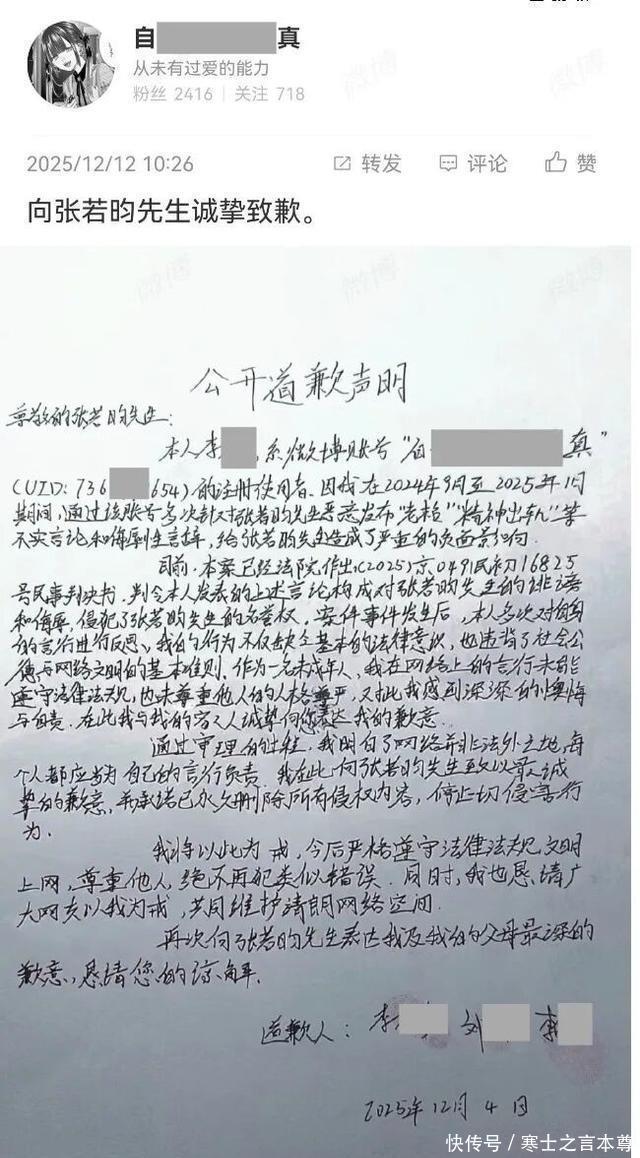 自 真
从未有过爱的能力
粉丝 2416 | 关注 718
2025/12/12 10:26 转发 评论 赞
向张若昀先生诚挚致歉。
公开道歉声明
尊敬的张若昀先生：
本人李 ，系微博账号“自 真”
（UID：736 654）的注册使用者。因我在2024年9月至2025年1月
期间，通过该账号多次针对张若昀先生恶意发布“老枪”“精神出轨”等
不实言论和侮辱性言辞，给张若昀先生造成了严重的负面影响。
目前，本案已经法院作出（2025）京0491民初16825
号民事判决书，判令本人发表的上述言论构成对张若昀先生的诽谤
和侮辱，侵犯了张若昀先生的名誉权，案件事件发生后，本人多次对自己
的言行进行反思，我的行为不仅缺乏基本的法律意识，也违背了社会公
德及网络文明的基本准则。作为一名未成年人，我在网络上的言行未能
遵守法律法规，也未尊重他人的人格尊严，对此我感到深深的懊悔
与自责。在此我与我的家人诚挚向您表达我的歉意。
通过审理的过程，我明白了网络并非法外之地，每
个人都应当为自己的言行负责。我在此向张若昀先生致以最诚
挚的歉意，并承诺已永久删除所有侵权内容，停止一切侵害行
为。
我将以此为戒，今后严格遵守法律法规，文明
上网，尊重他人，绝不再犯类似错误。同时，我也恳请广
大网友以我为戒，共同维护清朗网络空间。
再次向张若昀先生表达我及我的父母最深的
歉意，恳请您的谅解。
道歉人：李 刘 李
2025年12月4日
快传号 / 寒士之言本尊